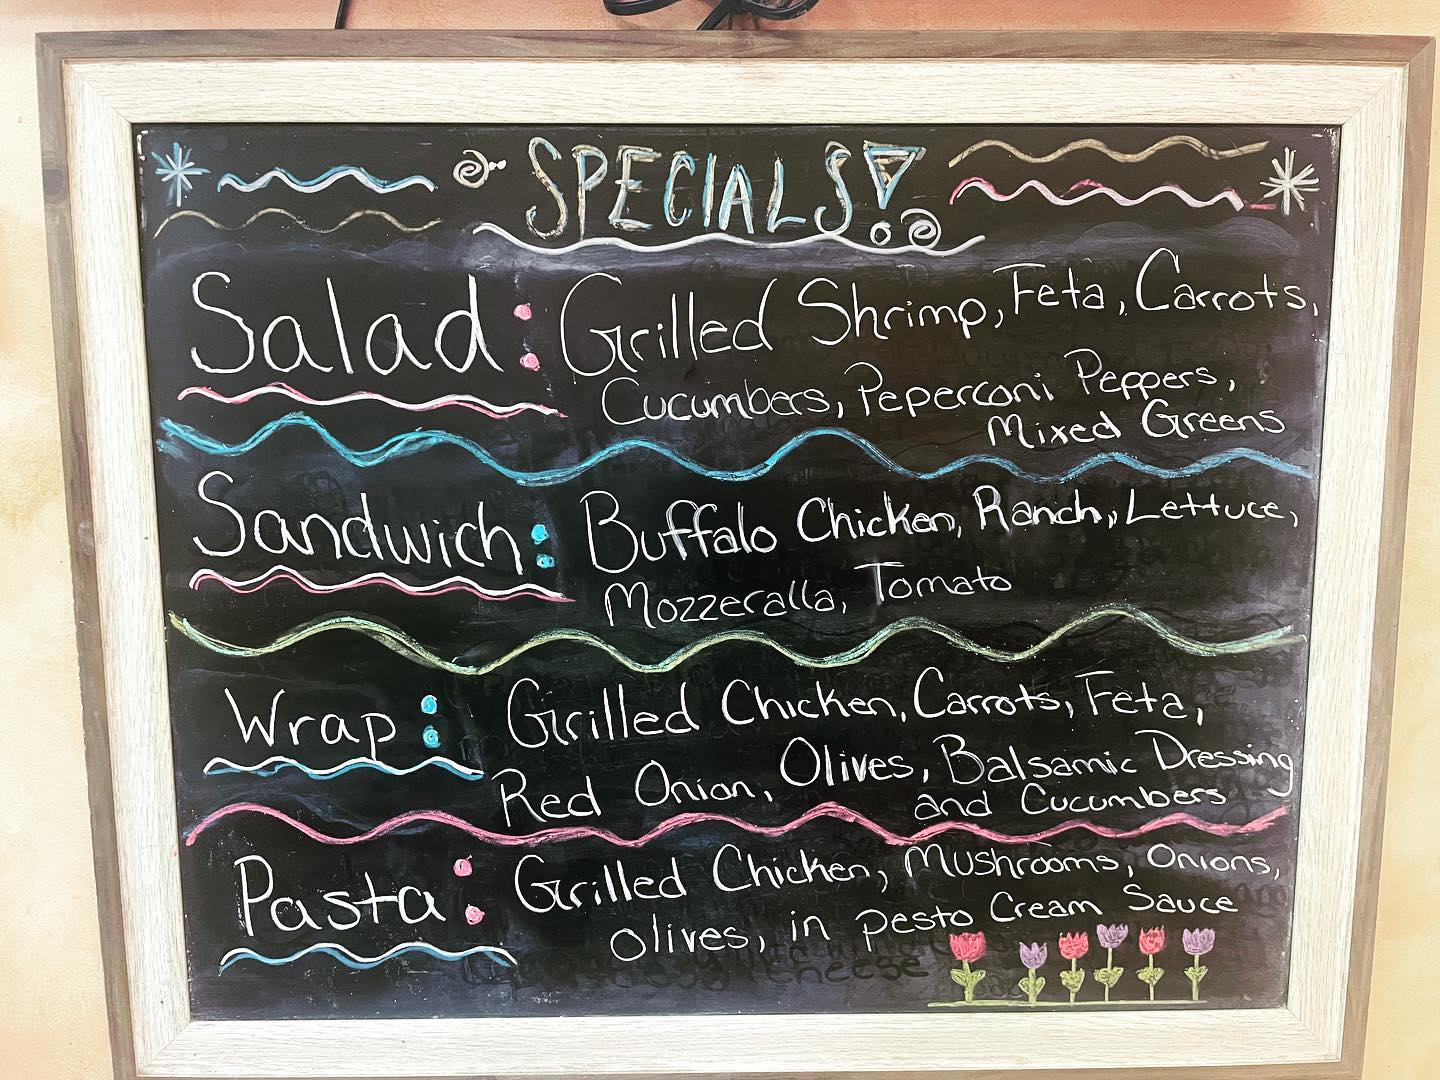 SPECIALS!
Salad: Grilled Shrimp, Feta, Carrots,
Cucumbers, Peperconi Peppers,
Mixed Greens
Sandwich: Buffalo Chicken, Ranch, Lettuce,
Mozzeralla, Tomato
Wrap: Grilled Chicken, Carrots, Feta,
Red Onion, Olives, Balsamic Dressing
and Cucumbers
Pasta: Grilled Chicken, Mushrooms, Onions,
Olives, in pesto Cream Sauce
cheese